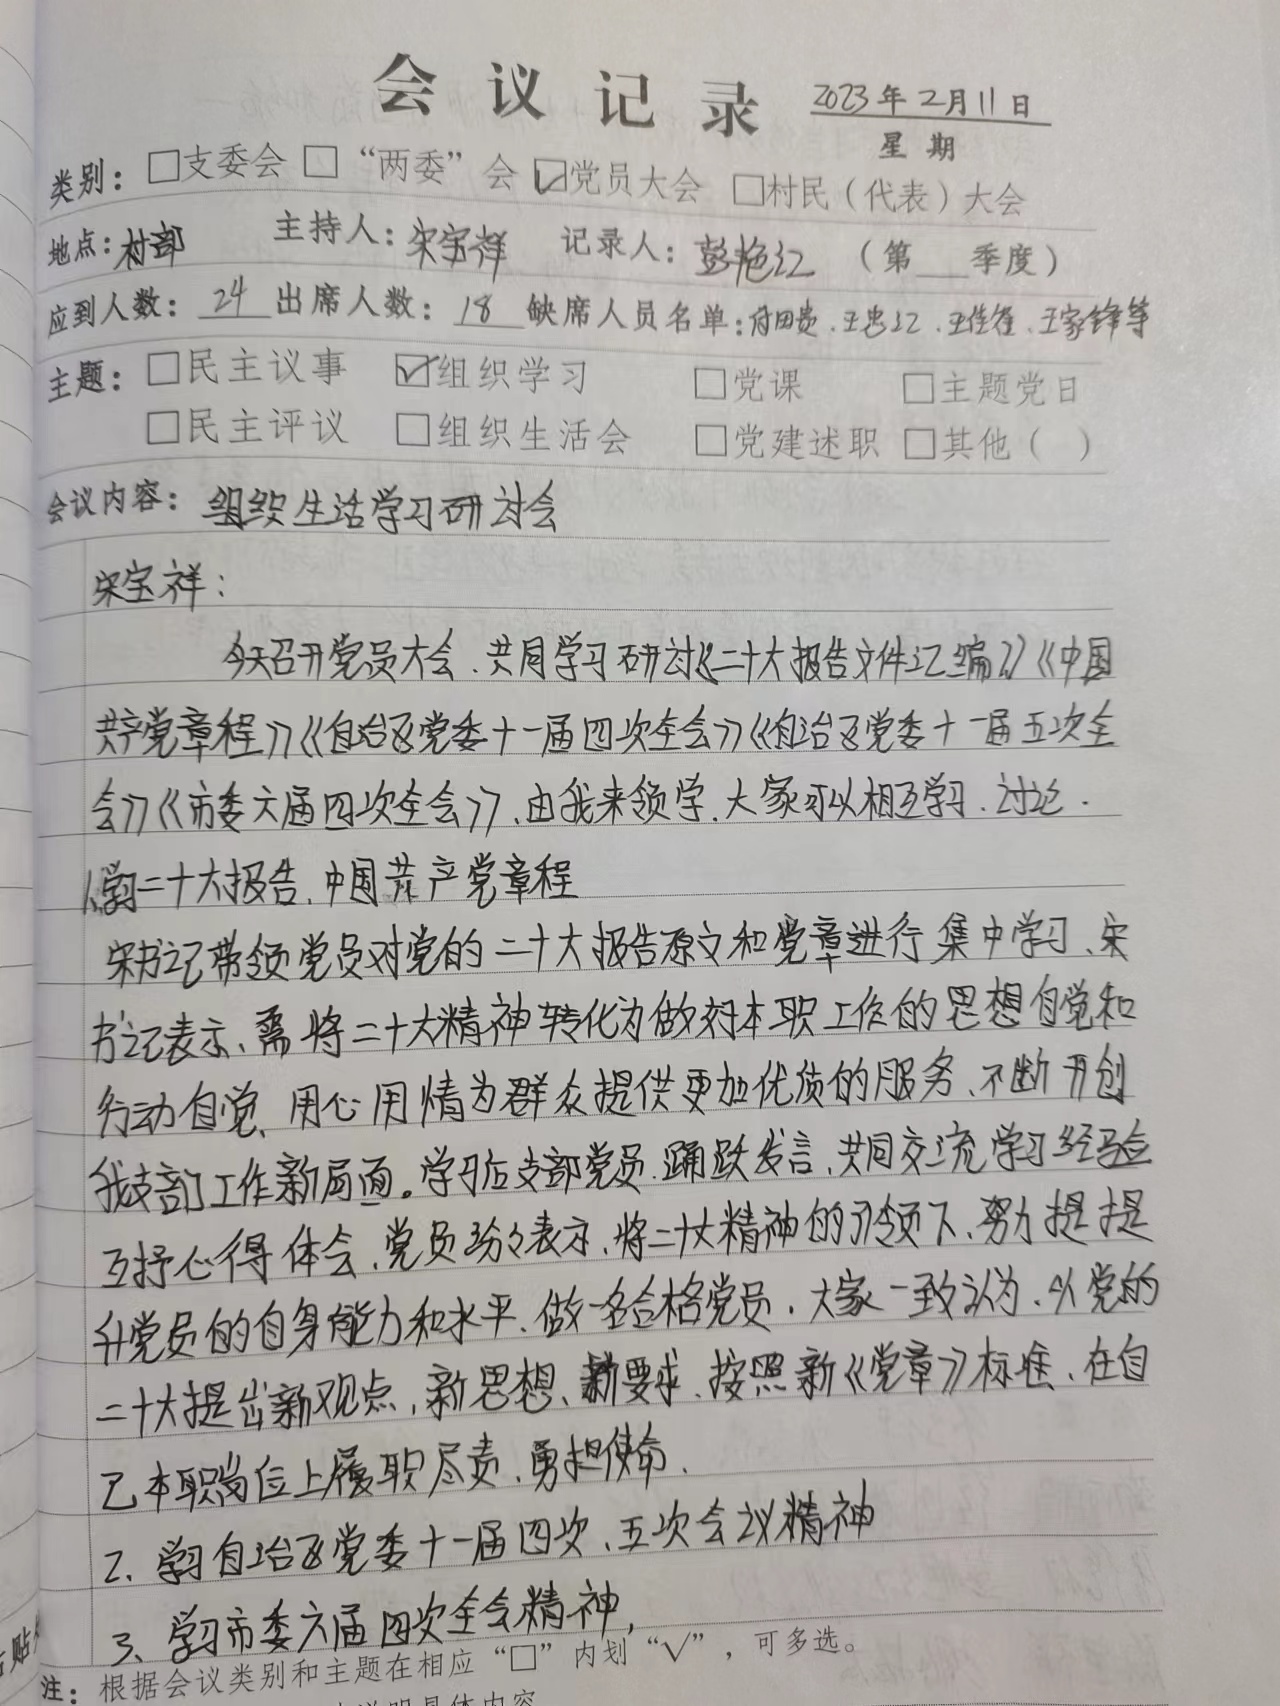 会议记录 2023年2月11日
星期
类别：□支委会 □“两委”会 ☑党员大会 □村民（代表）大会
地点：村部 主持人：宋宝祥 记录人：彭艳红 （第 季度）
应到人数：24 出席人数：18 缺席人员名单：付田贵、王忠红、王佳、王家锋等
主题：□民主议事 ☑组织学习 □党课 □主题党日
□民主评议 □组织生活会 □党建述职 □其他（ ）
会议内容：组织生活学习研讨会
宋宝祥：
今天召开党员大会、共同学习研讨《二十大报告文件汇编》《中国
共产党章程》《自治区党委十一届四次全会》《自治区党委十一届五次全
会》《市委六届四次全会》、由我来领学、大家可以相互学习、讨论.
1、学习二十大报告、中国共产党章程
宋书记带领党员对党的二十大报告原文和党章进行集中学习、宋
书记表示、需将二十大精神转化为做对本职工作的思想自觉和
行动自觉、用心用情为群众提供更加优质的服务、不断开创
我支部门工作新局面。学习后支部党员、踊跃发言、共同交流学习经验
互抒心得体会、党员纷々表示、将二十大精神的引领下、努力提提
升党员的自身能力和水平、做一名合格党员、大家一致认为、以党的
二十大提出新观点、新思想、新要求、按照新《党章》标准、在自
己本职岗位上履职尽责、勇担使命、
2、学习自治区党委十一届四次、五次会议精神
3、学习市委六届四次全会精神、
注：根据会议类别和主题在相应“□”内划“√”，可多选。
说明具体内容